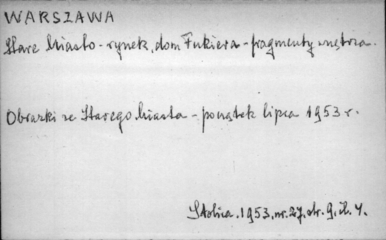 WARSZAWA
Stare Miasto - rynek, dom Fukiera - fragmenty wnętrza.
Obrazki ze Starego Miasta - początek lipca 1953 r.
Stolica. 1953. nr. 27. str. 9. il. 4.